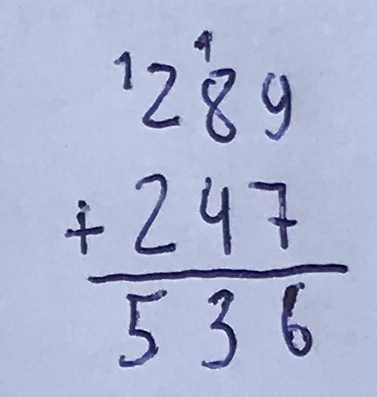 1 1
289
+ 247
536